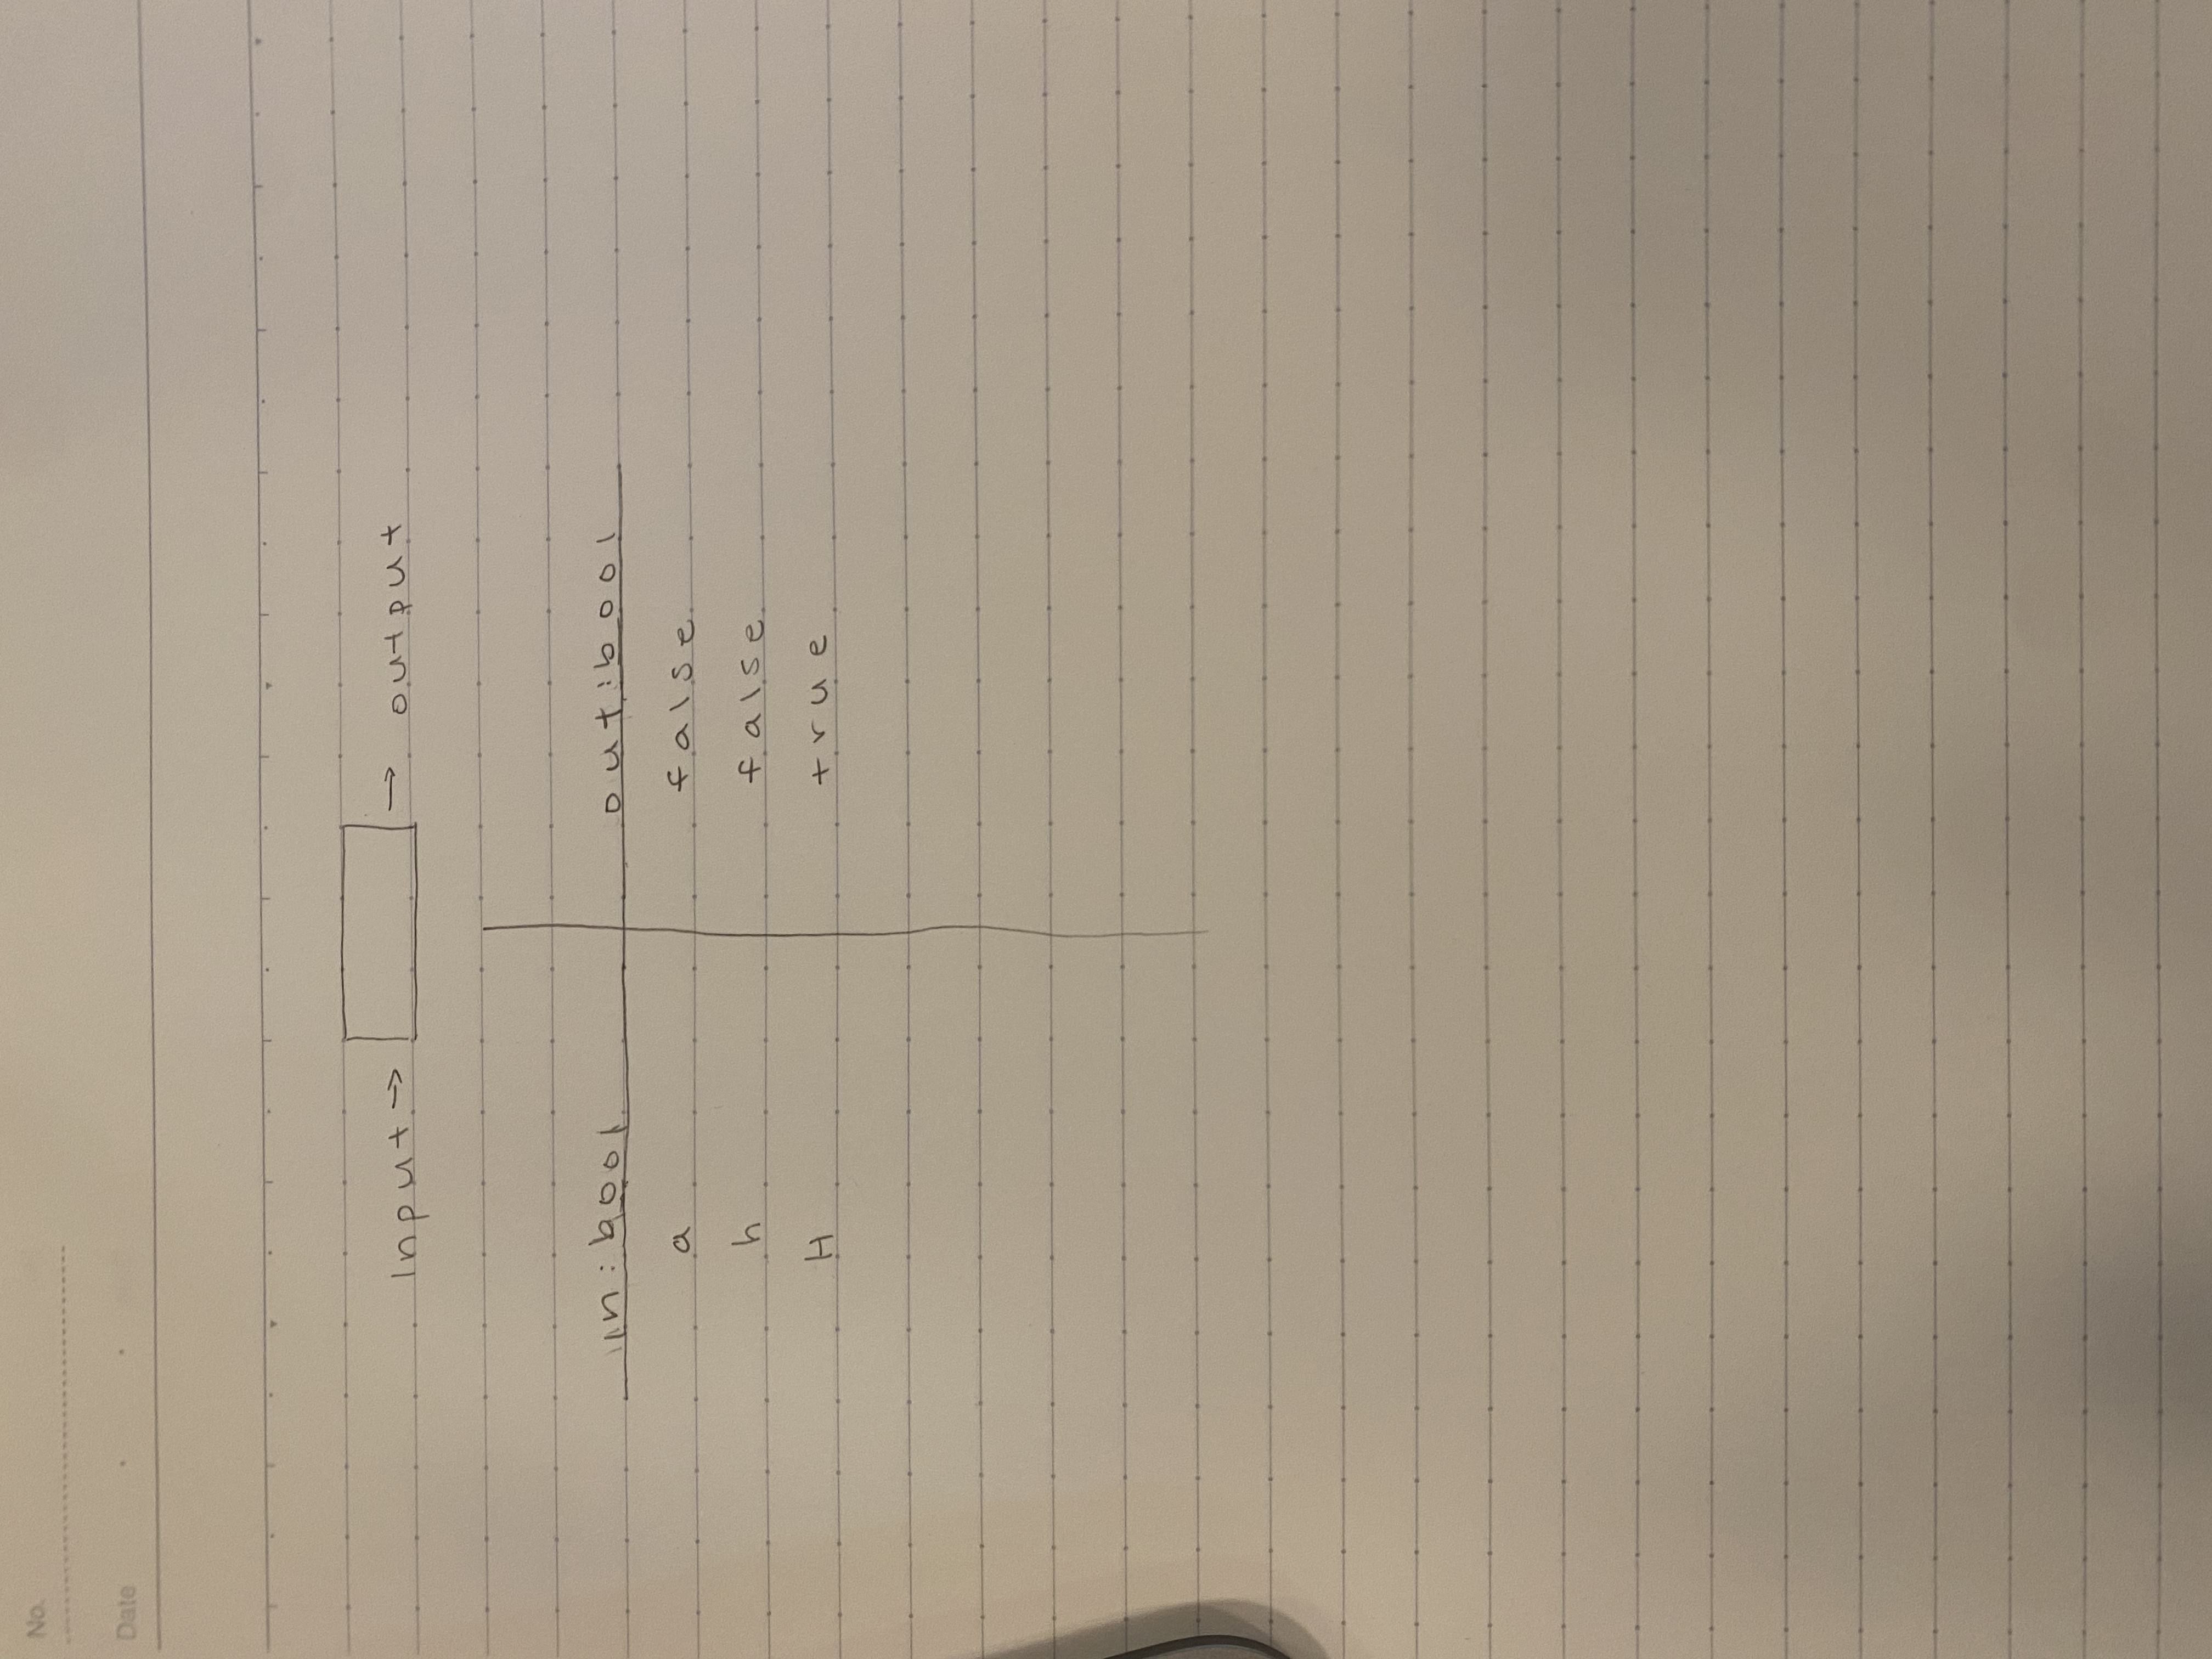 No.
Date
Input → → output
in:bool out:bool
a false
h false
H true